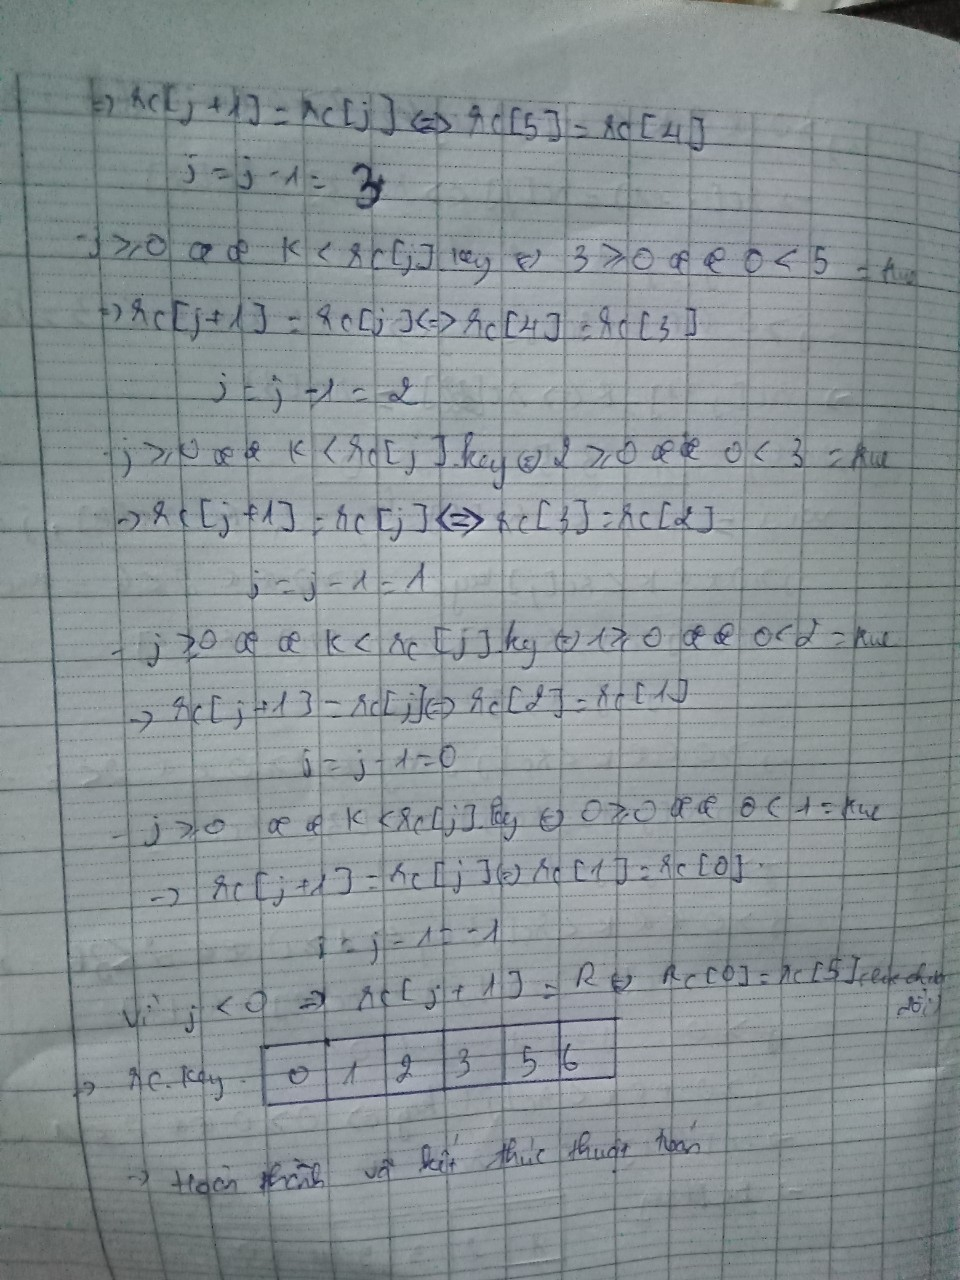 => rc[j+1] = rc[j] <=> rc[5] = rc[4]
j = j - 1 = 3
- j ≥ 0 && K < rc[j].key <=> 3 ≥ 0 && 0 < 5 = true
-> rc[j+1] = rc[j] <=> rc[4] = rc[3]
j = j - 1 = 2
- j ≥ 0 && K < rc[j].key <=> 2 ≥ 0 && 0 < 3 = true
-> rc[j+1] = rc[j] <=> rc[3] = rc[2]
j = j - 1 = 1
- j ≥ 0 && K < rc[j].key <=> 1 ≥ 0 && 0 < 2 = true
-> rc[j+1] = rc[j] <=> rc[2] = rc[1]
j = j - 1 = 0
- j ≥ 0 && K < rc[j].key <=> 0 ≥ 0 && 0 < 1 = true
-> rc[j+1] = rc[j] <=> rc[1] = rc[0].
j = j - 1 = -1
Vì j < 0 => rc[j+1] = R <=> rc[0] = rc[5]
-> rc.key 0 1 2 3 5 6
-> Hoàn thành và kết thúc thuật toán